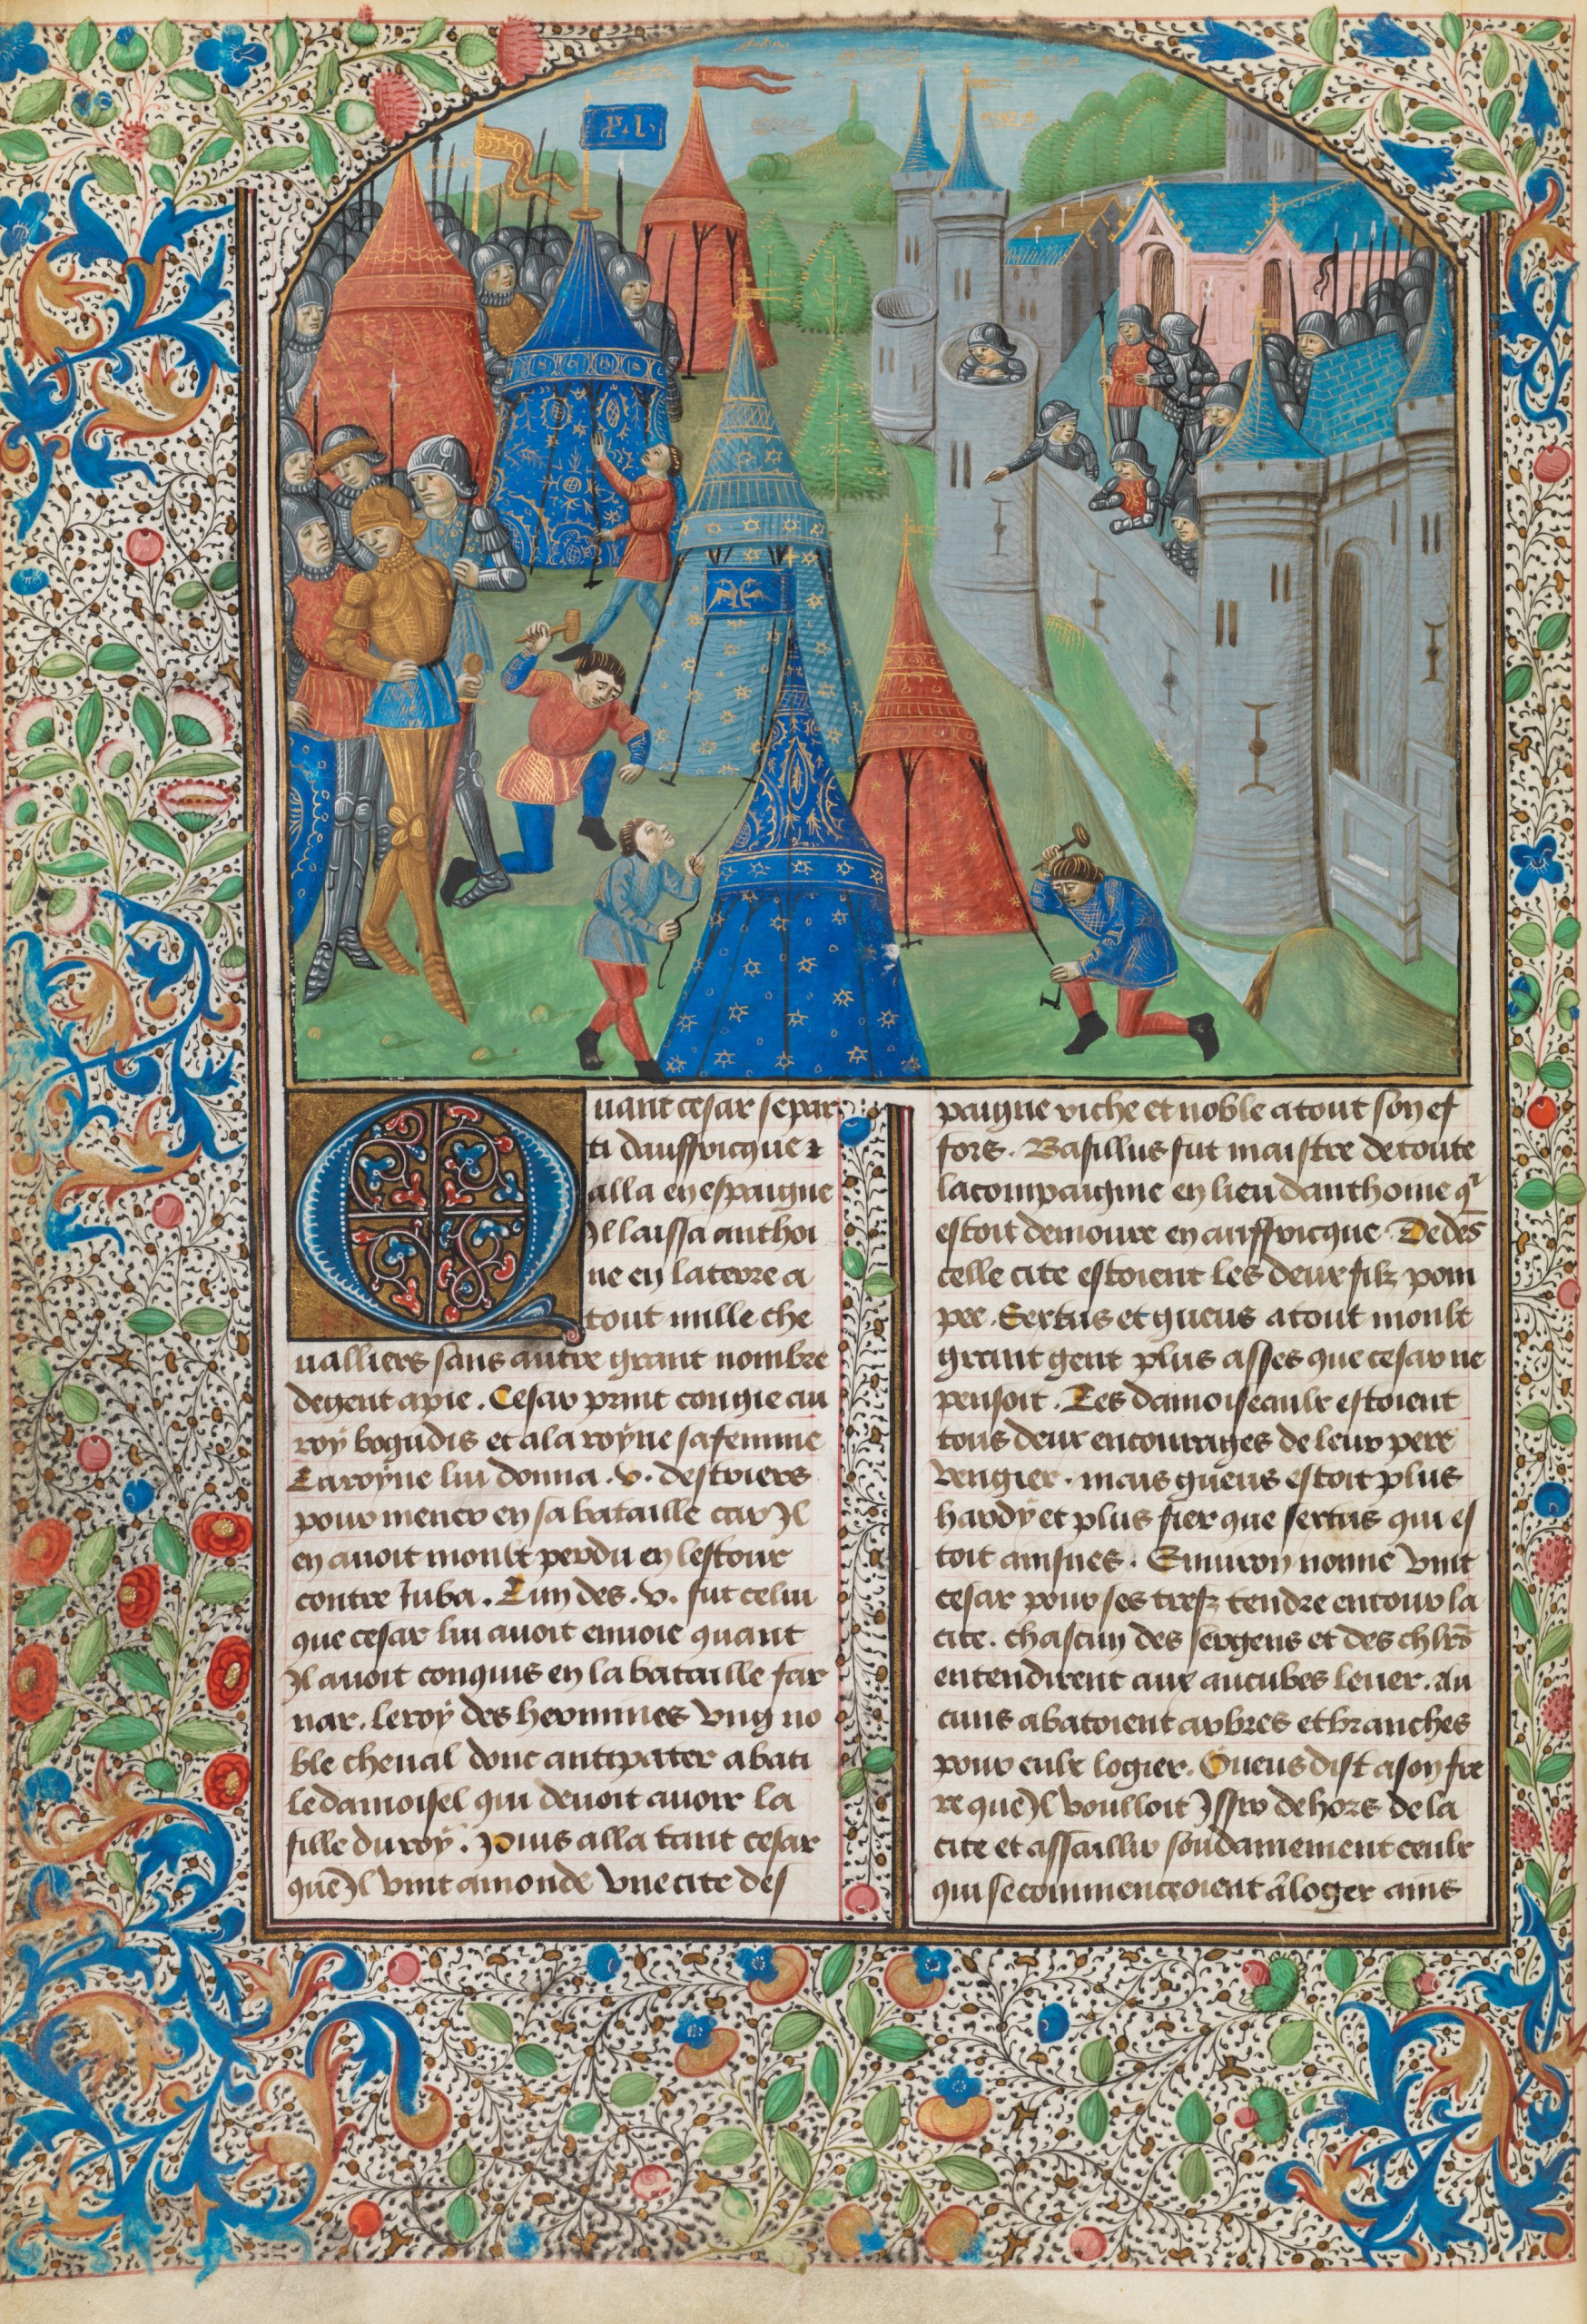 Quant cesar se par
ti dauffricque et
alla en espaigne
Il laissa anthoi
ne en la terre a
tout mille che
ualliers sans autre grant nombre
de gent a pie . Cesar print congie au
roy bogudis et a la royne sa femme
La royne lui donna . v . destriers
pour mener en sa bataille car Il
en auoit moult perdu en lestour
contre Iuba . Lun des . v . fut celui
que cesar lui auoit enuoie quant
Il auoit conquis en la bataille far
nar . le roy des hermines vng no
ble cheual donc antipater abati
le damoisel qui deuoit auoir la
fille du roy . Puis alla tant cesar
que Il vint a monde vne cite des
paigne riche et noble a tout son ef
fors . Basillus fut maistre de toute
la compaignie en lieu danthoine qi
estoit demoure en auffricque . Dedēs
celle cite estoient les deux filz pom
pee . Sextus et gneus a tout moult
grant gent plus asses que cesar ne
pensoit . Les damoiseaulx estoient
tous deux encourages de leur pere
vengier . mais gneus estoit plus
hardy et plus fier que sextus qui es
toit ainsnes . Enuiron nonne vint
cesar pour ses trefz tendre entour la
cite . chascun des sergens et des chlrs
entendirent aux aucubes leuer . Au
cuns abatoient arbres et branches
pour eulx logier . Gneus dist a son fre
re que Il voulloit Issir dehors de la
cite et assaillir soudainement ceulx
qui se commencoient a loger ains